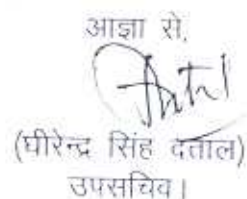 आज्ञा से,
(धीरेन्द्र सिंह दताल)
उपसचिव।